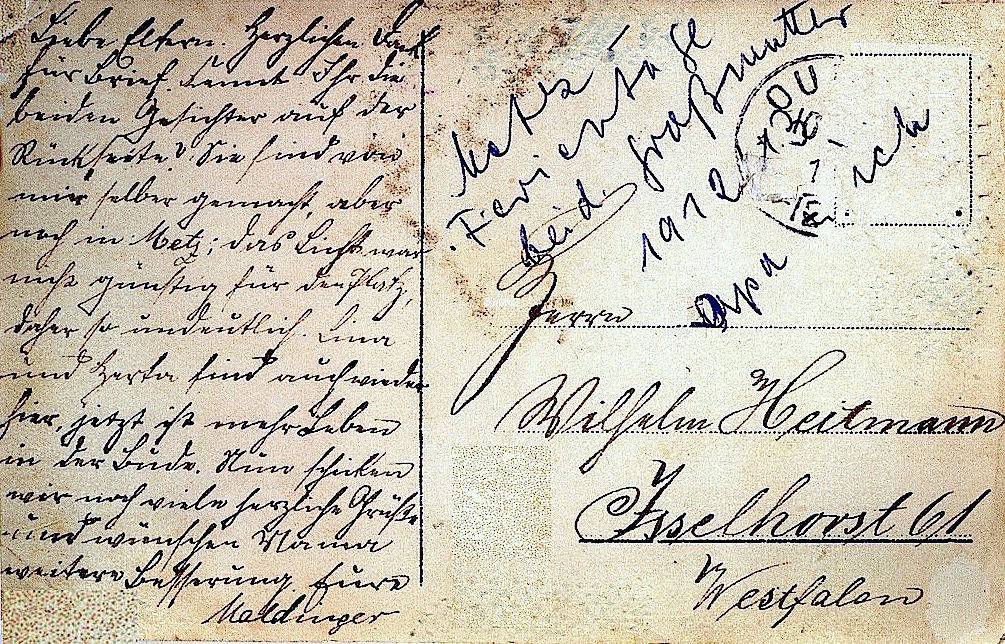 Liebe Eltern. Herzlichen Dank
für Brief. Kennt Ihr die
beiden Gesichter auf der
Rückseite? Sie sind von
mir selber gemacht, aber
noch in Metz; das Licht war
nicht günstig für den Platz,
daher so undeutlich. Lina
und Herta sind auch wieder
hier, jetzt ist mehr Leben
in der Bude. Nun schicken
wir noch viele herzliche Grüße
und wünschen Mama
weitere Besserung Eure
Meldinger
Ferientage
beid. Großmutter
1912 ich
Opa
Herrn
Wilhelm Heitmann
Isselhorst 61
Westfalen